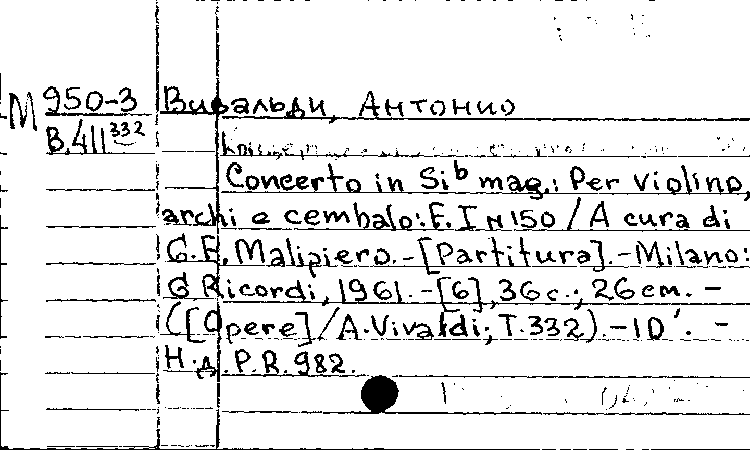 М 950-3 Вивальди, Антонио
В.411 332
Concerto in Si b mag.: Per violino,
archi e cembalo: F. I N 150 / A cura di
G.F. Malipiero. - [Partitura]. - Milano:
G Ricordi, 1961. - [6], 36 c.; 26 cm. -
([Opere] / A. Vivaldi; T. 332). - 10'. -
Н.д. P.R. 982.